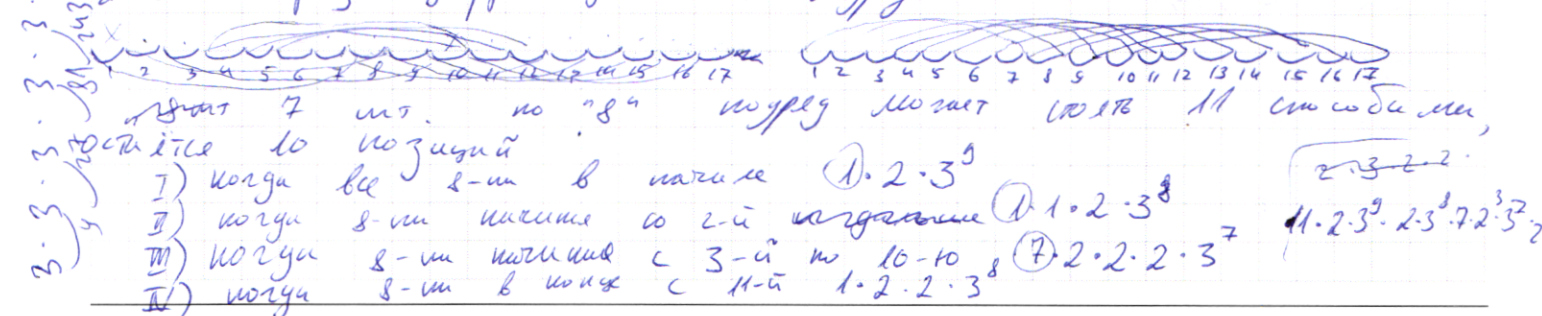 1 2 3 4 5 6 7 8 9 10 11 12 13 14 15 16 17 1 2 3 4 5 6 7 8 9 10 11 12 13 14 15 16 17
7 шт. по "8" подряд может стоять 11 способами,
остаётся 10 позиций
I) когда все 8-ки в начале 1·2·3⁹
II) когда 8-ки начиная со 2-й 1·1·2·3⁸
III) когда 8-ки начиная с 3-й по 10-ю 7·2·2·2·3⁷
IV) когда 8-ки в конце с 11-й 1·2·2·3⁸
11·2·3⁹·2·3⁸·7·2³·3⁷·2
3·3·3·3·3·3